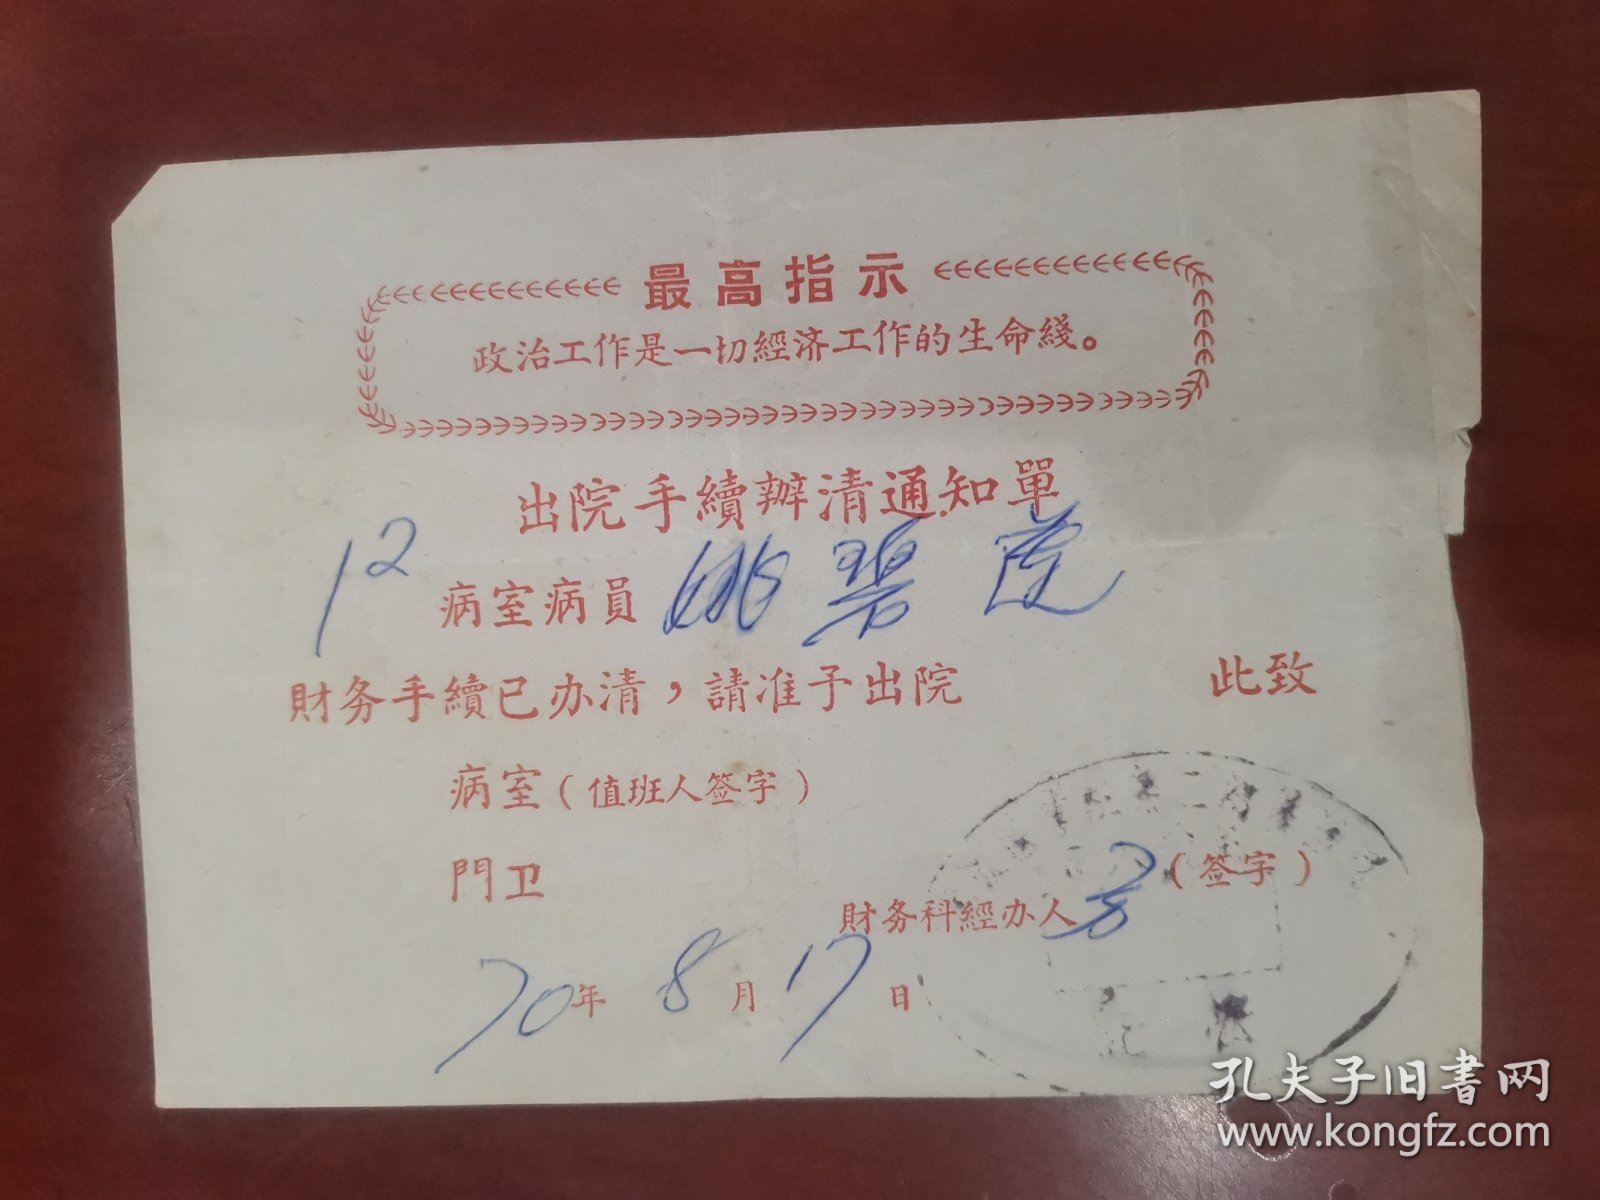 最高指示
政治工作是一切經济工作的生命綫。
出院手續辦清通知單
12 病室病員 姚碧
財务手續已办清，請准予出院 此致
病室（值班人签字）
門卫
財务科經办人 （签字）
70年 8月 17日
孔夫子旧書网
www.kongfz.com